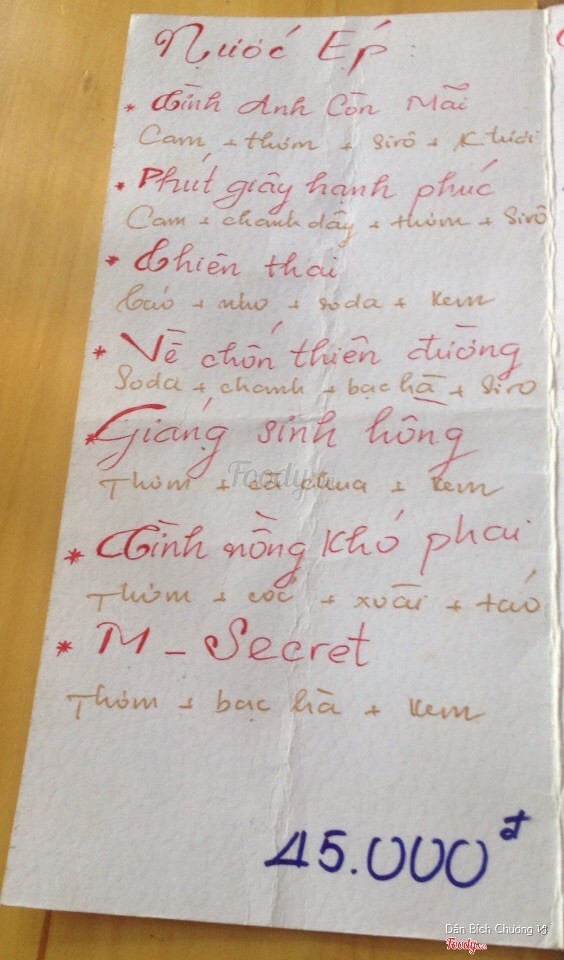 Nước Ép :
* Tình Anh Còn Mãi
Cam + thơm + sirô + K tươi
* Phút giây hạnh phúc
Cam + chanh dây + thơm + sirô
* Thiên thai
táo + nho + soda + kem
* Về chốn thiên đường
Soda + chanh + bạc hà + siro
* Giáng sinh hồng
Thơm + cà chua + kem
* Tình nồng khó phai
Thơm + cóc + xoài + táo
* M - Secret
Thơm + bạc hà + kem
45.000đ
Foody.vn
Dân Bích Chương
Foody.vn